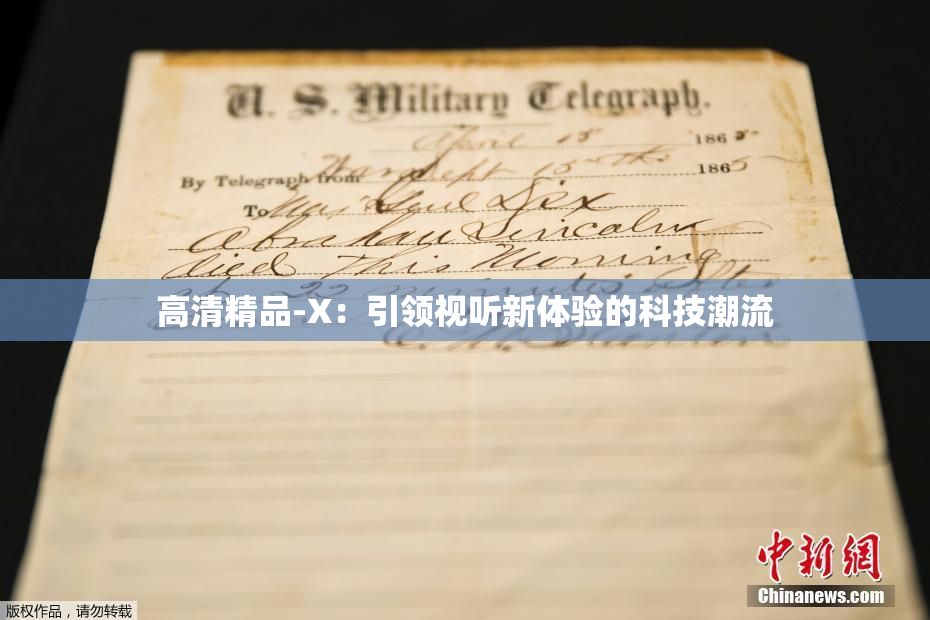 U. S. Military Telegraph.
April 15 1865
By Telegraph from War Dept 15th 1865
To Maj Genl Dix
Abraham Lincoln
died This Morning
at 22 minutes after
高清精品-X：引领视听新体验的科技潮流
E. M. Stanton
中新网
Chinanews.com
版权作品，请勿转载